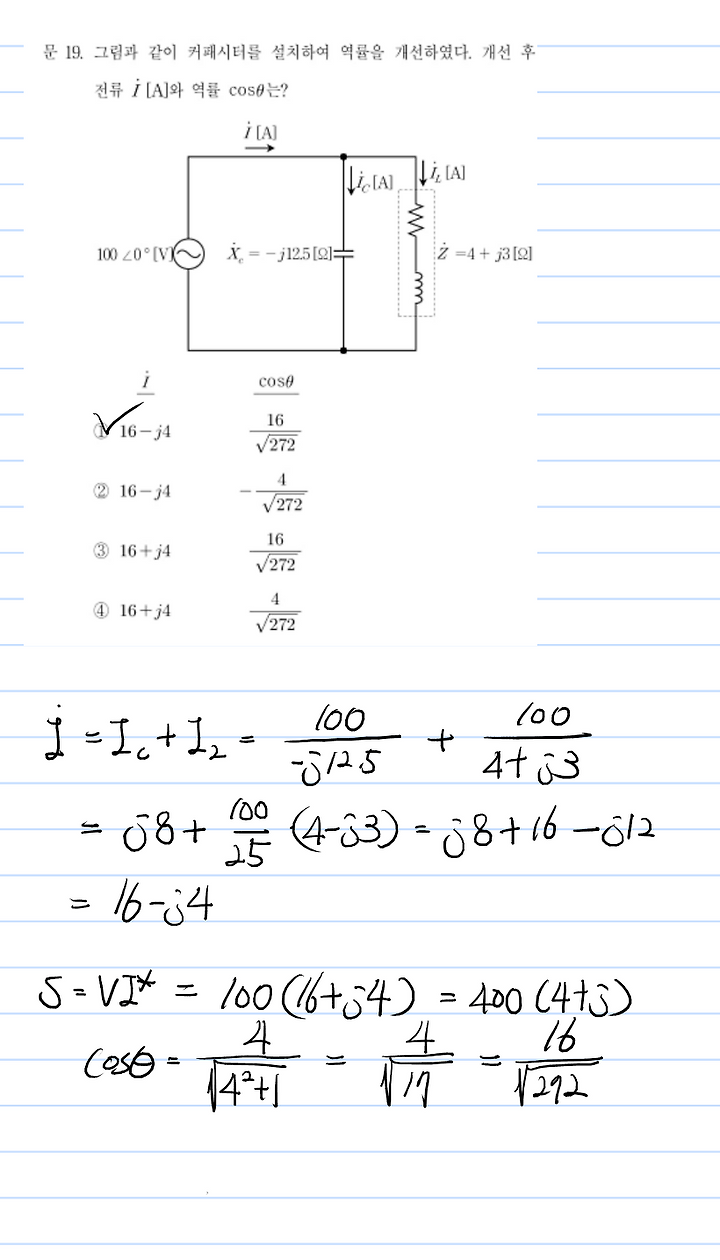 문 19. 그림과 같이 커패시터를 설치하여 역률을 개선하였다. 개선 후
전류 İ [A]와 역률 cosθ는?
İ [A]
İ_C [A] İ_L [A]
100 ∠0° [V] Ẋ_c = −j12.5 [Ω] Ż = 4 + j3 [Ω]
İ cosθ
① 16−j4 16/√272
② 16−j4 −4/√272
③ 16+j4 16/√272
④ 16+j4 4/√272
İ = I_c + I_2 = 100/−j12.5 + 100/4+j3
= j8 + 100/25 (4−j3) = j8 + 16 − j12
= 16−j4
S = VI* = 100(16+j4) = 400(4+j)
cosθ = 4/√4²+1 = 4/√17 = 16/√272